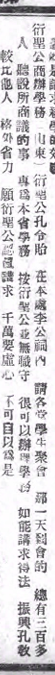 衍聖公商辦學務　山東　衍聖公孔令貽　在本歲李公祠內　請各堂學生聚會　那一天到會的　總有三百多
人　聽說所商議的事　專爲本省學務　按衍聖公並無職守　很可以辦理學務　如能講求得法　振興孔敎
較比他人　格外省力　願衍聖公認眞講求　千萬要虛心　不可自以爲是